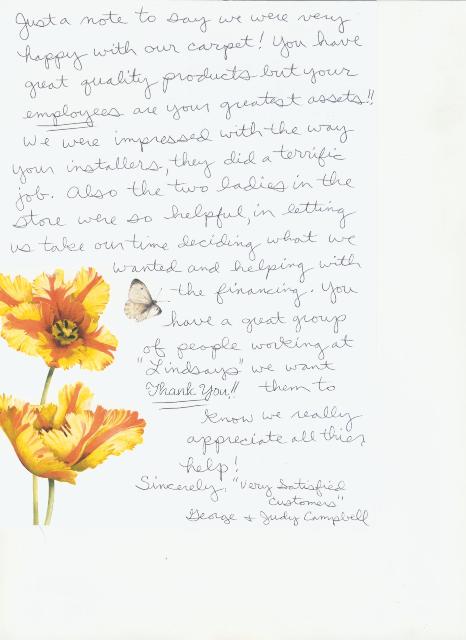 Just a note to say we were very
happy with our carpet! You have
great quality products but your
employees are your greatest assets!!
We were impressed with the way
your installers, they did a terrific
job. Also the two ladies in the
store were so helpful, in letting
us take our time deciding what we
wanted and helping with
the financing. You
have a great group
of people working at
"Lindsays" we want
Thank You!! them to
know we really
appreciate all thier
help!
Sincerely, "Very Satisfied
Customers"
George & Judy Campbell